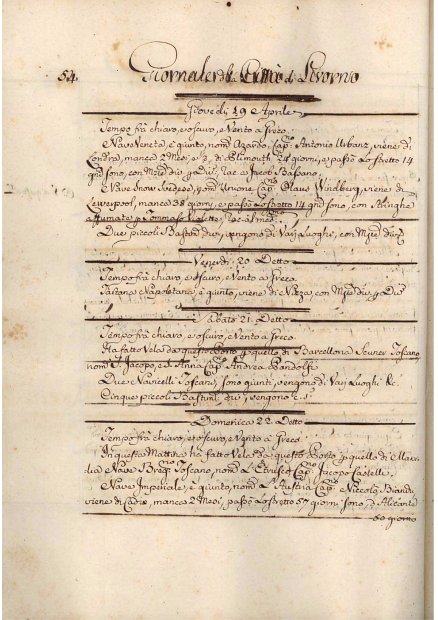 54. Giornale di Livorno
Giovedi 19 Aprile
Tempo frà chiaro, e oscuro, e Vento a Greco
Nave Veneta è giunto, nom.ᵃ Azardo, Cap. Antonio Urbanz, viene di
Londra, manca 2 Mesi, e di Plimouth 28 giorni, e passò Lo stretto 14
gni sono, con Mzie div. p Div. Rac. a Jacob Bassano.
Nave Snow Svedese, nom. Unione Cap. Olaus Windberg, viene di
Leverpool, manca 38 giorni, e passò Lo Stretto 14 gni sono, con Aringhe
affumate p Tommaso
Due piccoli Bastim. div. vengono di Varij Luoghi, con Mzie div.
Venerdi 20 Detto
Tempo frà chiaro, e oscuro, e Vento a Greco
Tartana Napoletana, è giunto, viene di Nizza, con Mzie div. p Div.
Sabato 21 Detto
Tempo frà chiaro, e oscuro, Vento a Greco
Ha fatto Vela da questo Porto p quello di Barcellona Scuner Toscano
nom. S. Jacopo, e S. Anna Cap. Andrea Bandolfi
Due Navicelli Toscani, sono giunti, vengono di Varij Luoghi &c.
Cinque piccoli Bastim. div. vengono c. s.
Domenica 22 Detto
Tempo frà chiaro, e oscuro, e Vento a Greco
In questa Mattina ha fatto Vela da questo Porto p quello di Marsi-
lia Nave Brag. Toscano, nom. L'Etrusco Cap.no Jacopo Castelle
Nave Imperiale, è giunto, nom. L'Austria Cap.no Niccolò Biandi,
viene di Cadice, manca 2 Mesi, passò Lo stretto 57 giorni sono, d'Alicante
50 giorni